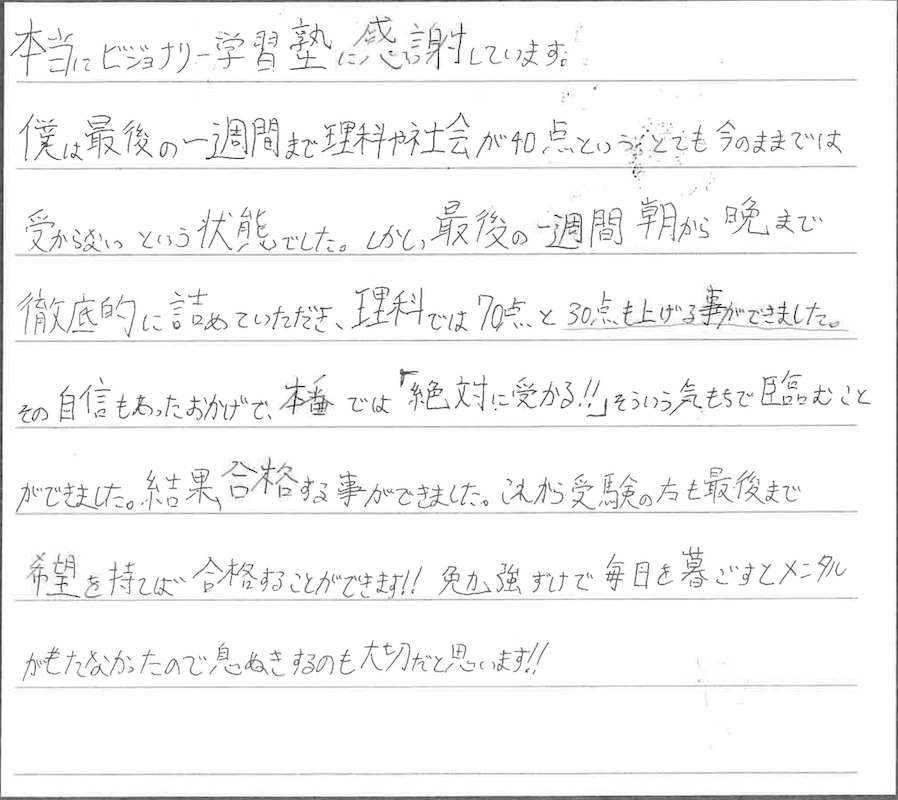 本当にビジョナリー学習塾に感謝しています。
僕は最後の一週間まで理科や社会が40点という、とても今のままでは
受からないという状態でした。しかし、最後の一週間朝から晩まで
徹底的に詰めていただき、理科では70点と30点も上げる事ができました。
その自信もあったおかげで、本番では「絶対に受かる!!」そういう気もちで臨むこと
ができました。結果、合格する事ができました。これから受験の方も最後まで
希望を持てば合格することができます!! 勉強ずけで毎日を暮ごすとメンタル
がもたなかったので息ぬきするのも大切だと思います!!